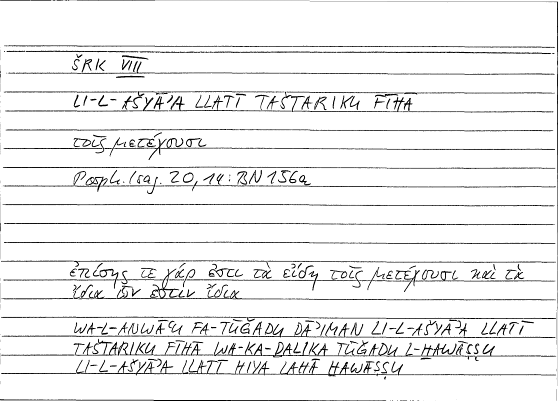 ŠRK VIII
LI-L-AŠYĀʾA LLATĪ TAŠTARIKU FĪHĀ
τοῖς μετέχουσι
Porph. Isag. 20, 14: BN 156a
ἐπίσης τε γάρ ἐστι τὰ εἴδη τοῖς μετέχουσι καὶ τὰ
ἴδια ὧν ἐστιν ἴδια
WA-L-ANWĀʿU FA-TŪǦADU DĀʾIMAN LI-L-AŠYĀʾA LLATĪ
TAŠTARIKU FĪHĀ WA-KA-ḎALIKA TŪǦADU L-ḪAWĀṢṢU
LI-L-AŠYĀʾA LLATĪ HIYA LAHĀ ḪAWĀṢṢU